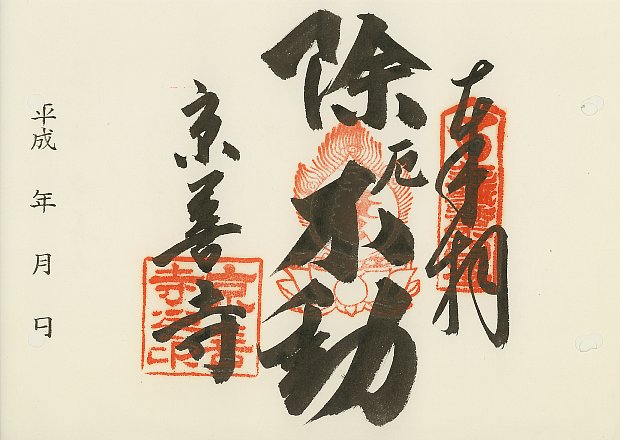 奉拝
除厄不動
京善寺
平成　年　月　日
京善寺法印